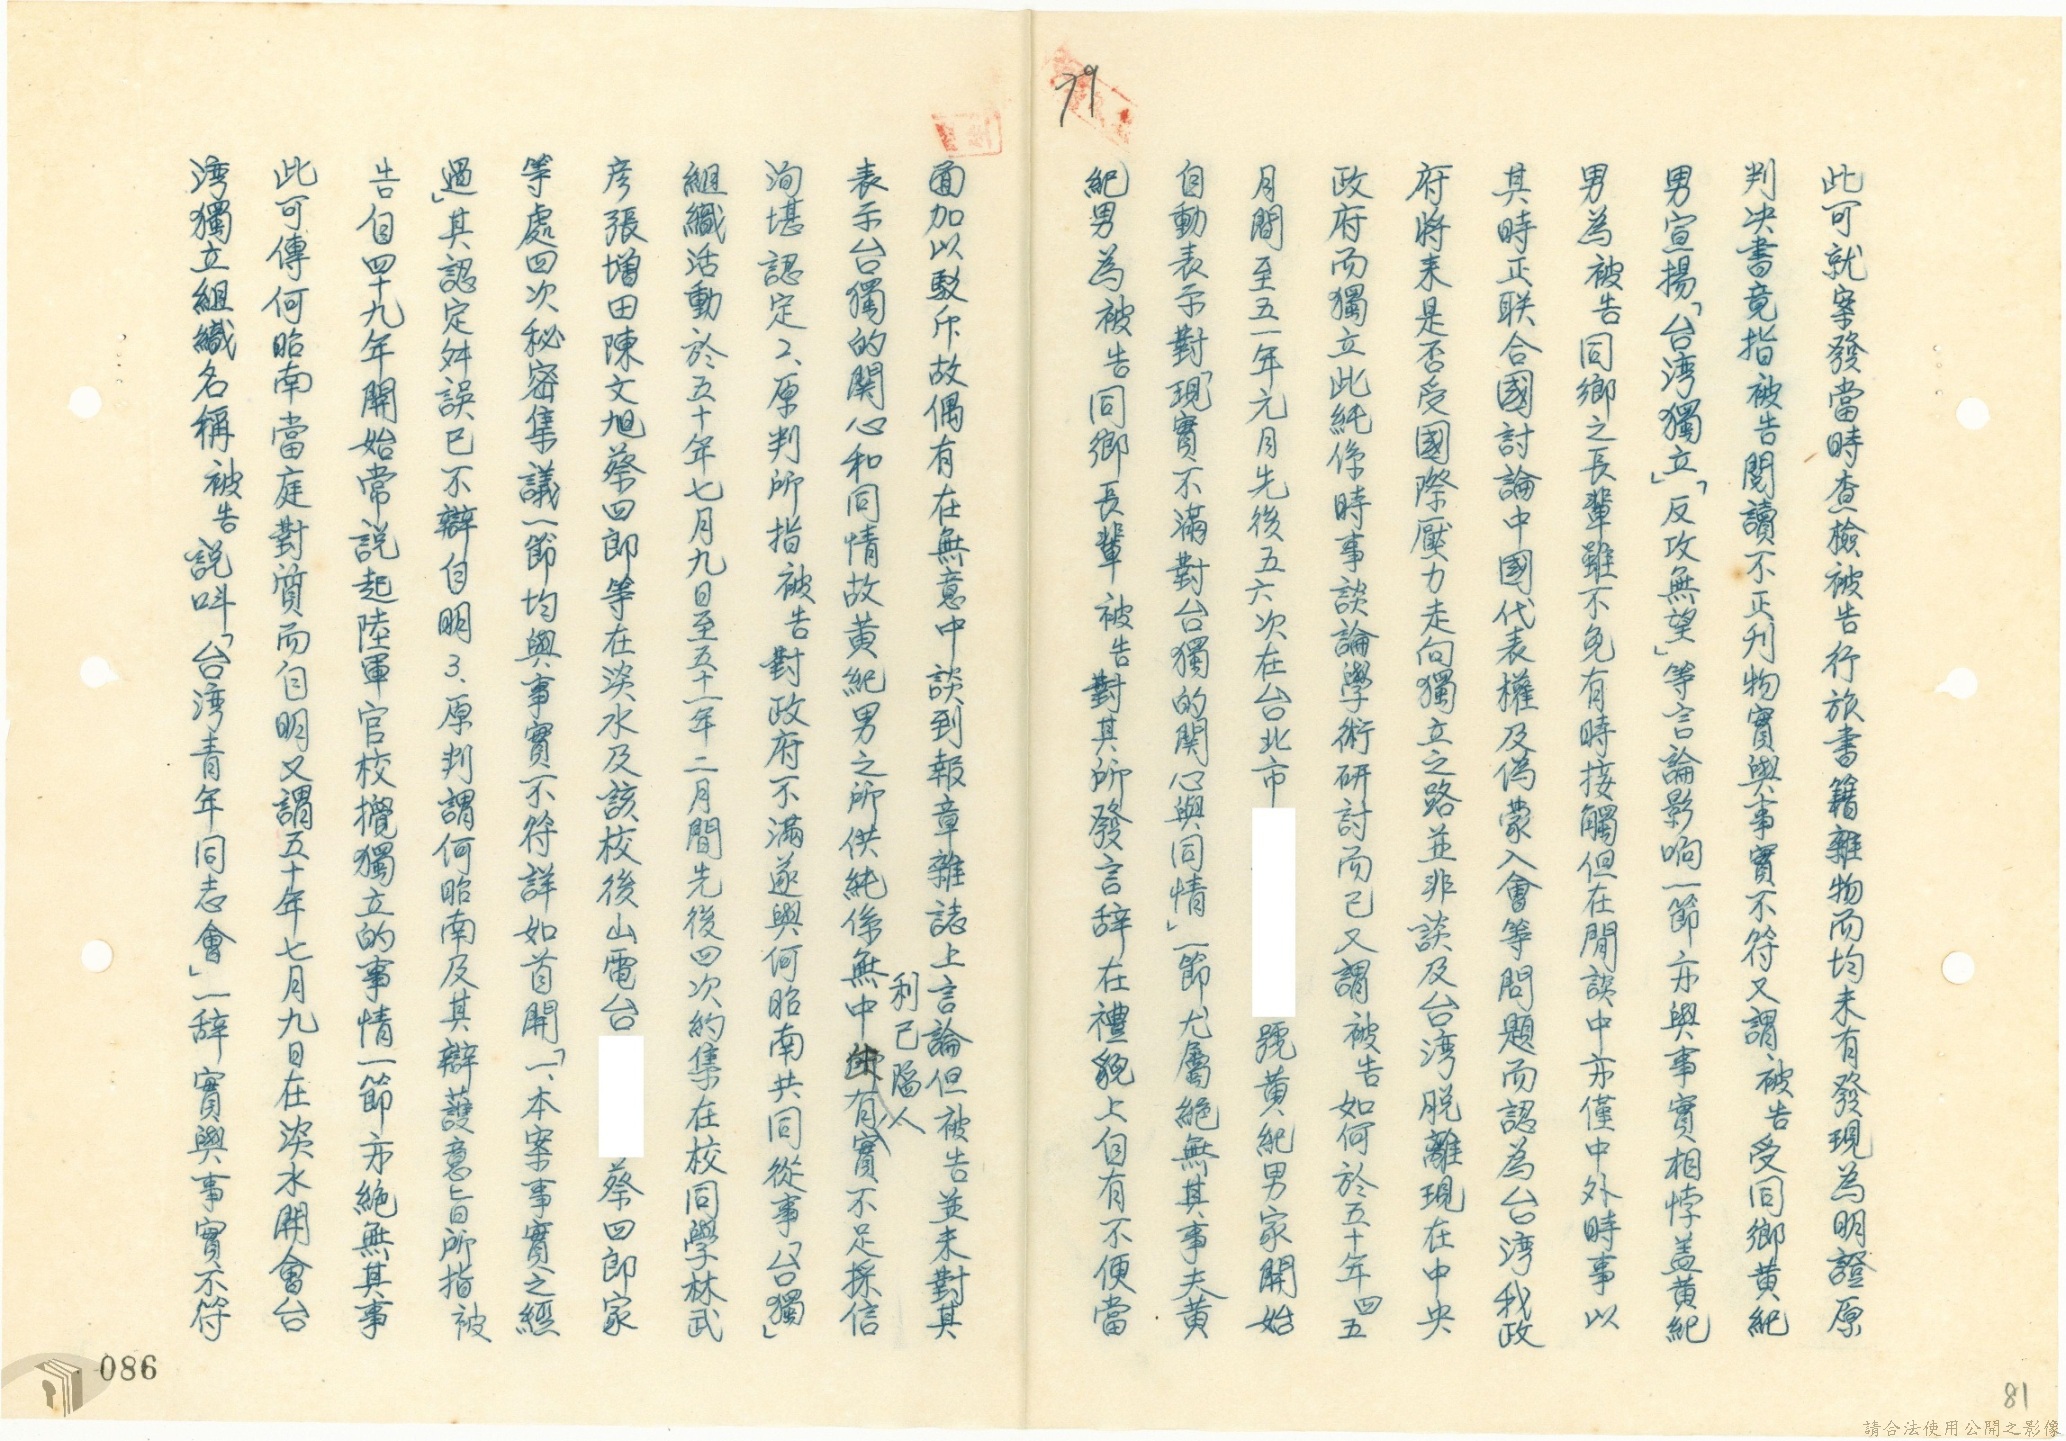 79
此可就案發當時查檢被告行旅書籍雜物而均未有發現為明證原
判决書竟指被告閱讀不正刊物實與事實不符又謂被告受同鄉黃紀
男宣揚「台湾獨立」「反攻無望」等言論影响一節亦與事實相悖盖黃紀
男為被告同鄉之長輩雖不免有時接觸但在閒談中亦僅中外時事以
其時正联合國討論中國代表權及偽蒙入會等問題而認為台湾我政
府將来是否受國際壓力走向獨立之路並非談及台湾脫離現在中央
政府而獨立此純係時事談論學術研討而已又謂被告如何於五十年四五
月間至五一年元月先後五六次在台北市
號黃紀男家開始
自動表示對「現實不滿對台獨的関心與同情」一節尤屬絕無其事夫黃
紀男為被告同鄉長輩被告對其所發言辞在禮貌上自有不便當
面加以駁斥故偶有在無意中談到報章雜誌上言論但被告並未對其
表示台獨的関心和同情故黃紀男之所供純係無中有實不足採信
利己陷人
洵堪認定2、原判所指被告對政府不滿遂與何昭南共同從事「台獨」
組織活動於五十年七月九日至五十一年二月間先後四次約集在校同學林武
彦張增田陳文旭蔡四郎等在淡水及該校後山電台
蔡四郎家
等處四次秘密集議一節均與事實不符詳如首開「一、本案事實之經
過」其認定舛誤已不辯自明3、原判謂何昭南及其辯護意旨所指被
告自四十九年開始常說起陸軍官校攪獨立的事情一節亦絕無其事
此可傳何昭南當庭對質而自明又謂五十年七月九日在淡水開會台
湾獨立組織名稱被告說叫「台湾青年同志會」一辞實與事實不符
086
81
請合法使用公開之影像